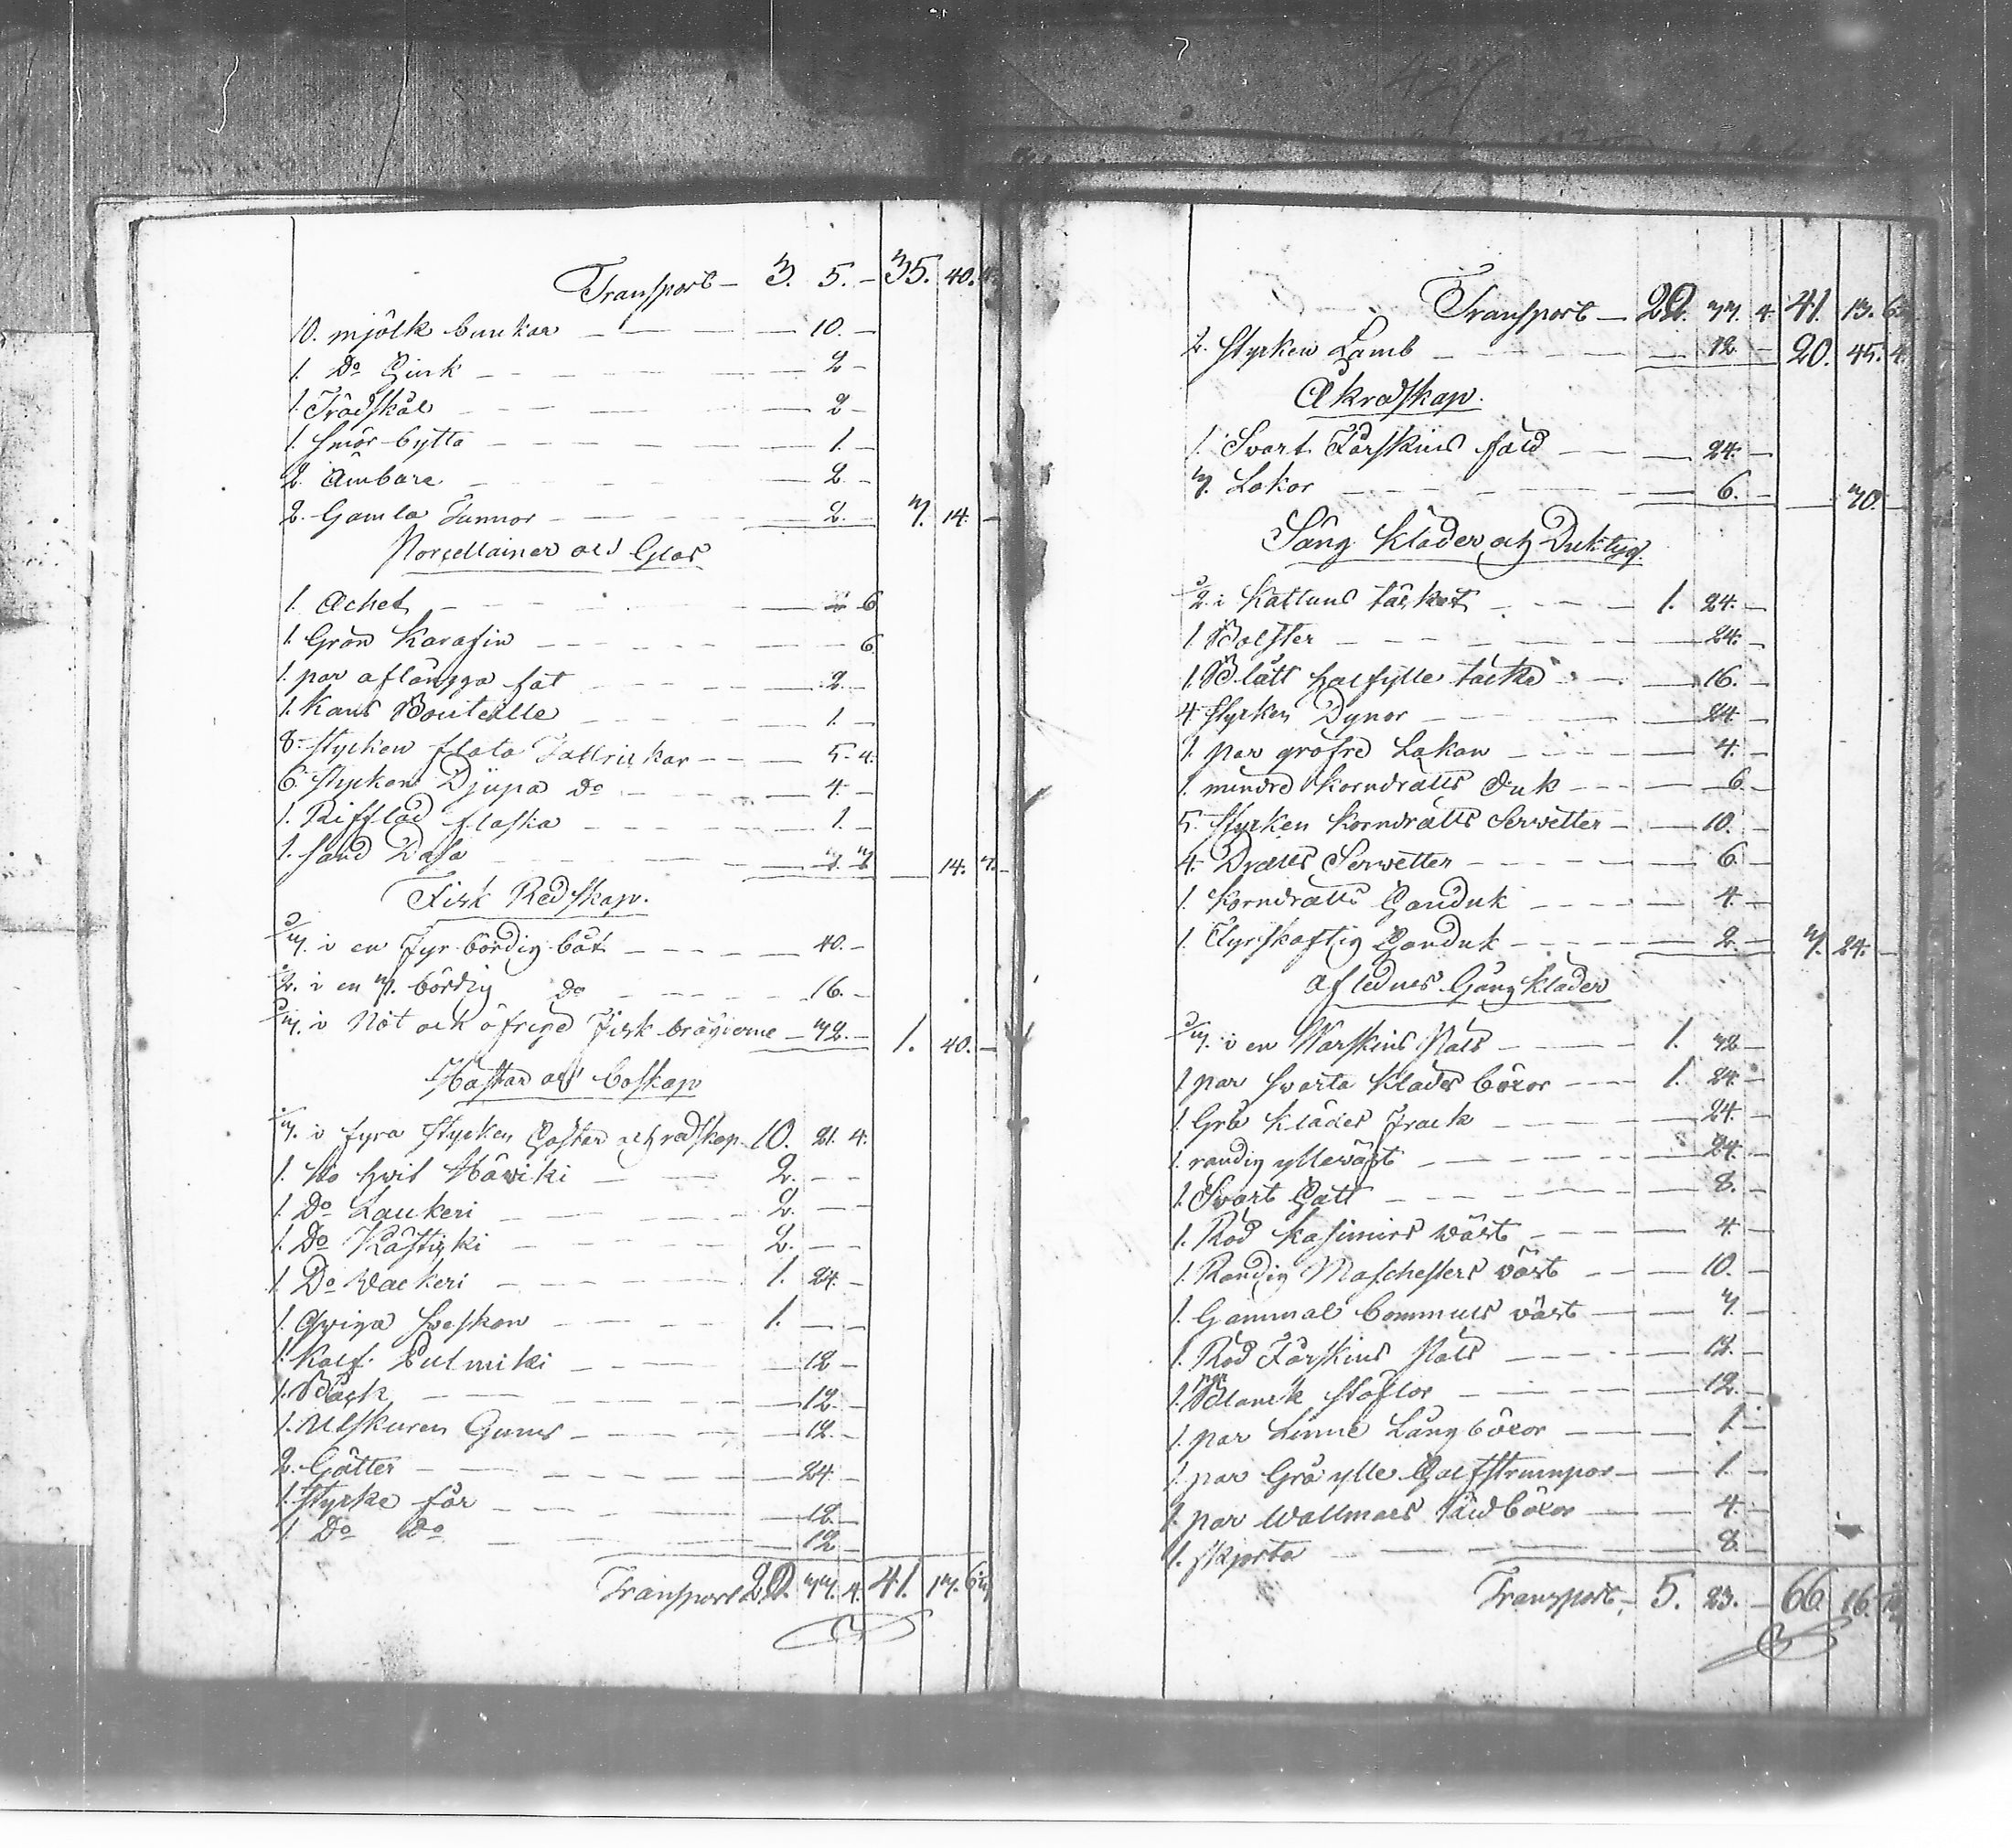 Transport — 3. 5. — 35. 40.
10. mjölk bunkar — 10. —
1. Do Kirk — 2 —
1. Trädskål — 2 —
1. smör bytta — 1. —
2. Ämbare — 2. —
2. Gamla Tunnor — 2. — 3. 14. —
Porcellainer och Glas
1. Achet — 6
1. Grön Karafin — 6.
1. par aflånga fat — 2. —
1. Kans Bouteille — 1. —
8. stycken flata Tallrickar — 5. 4.
6. stycken Djupa Do — 4. —
1. Rifflad flaska — 1. —
1. sand Dosa — 14.
Fisk Redskap.
i en fyr bördig båt — 40. —
i en 3. bördig do — 16. —
i Nöt och öfrige fisk brägderne — 32. — 1. 40. —
Hästar och boskap
i fyra stycken Hästar och redskap 10. 21. 4.
1. Ko hvit Häwiki — 2. — —
1. Do Laukeri — 2. — —
1. Do Kästiki — 2. — —
1. Do Wackeri — 1. 24. —
1. Qwiga — 1. — —
1. Kalf. Pulmiki — 12 —
1. Bäsk — 12. —
1. Utskuren Gums — 12. —
2. Götter — 24. —
1. stycke får — 12. —
1. Do Do — 12
Transport 22. 33. 4. 41. 13.
Transport — 22. 33. 4. 41. 13.
2. stycken Lamb — 12. — 20. 45. 4.
Åkredskap.
1. Svart Fårskins fäld — 24. —
3. Lakor — 6. — 30. —
Säng kläder och Duktyg.
i Kattuns täcket — 1. 24. —
1 Bolster — 24. —
1. Blått halfylle täcke — 16. —
4. stycken Dynor — 24 —
1. par gröfre Lakan — 4. —
1. mindre korndrälls Duk — 6. —
5. stycken korndrälls Servetter — 10. —
4. Drälls Servetter — 6. —
1. korndrälls Handuk — 4. —
1. Fyrskaftig Handuk — 2. — 3. 24. —
Aflednes Gångkläder
i en Warskins Päls — 1. 32 —
1 par svarta klädes böxor — 1. 24. —
1. Grå klädes Frack — 24. —
1. randig ylleväst — 24. —
1. Svart Hatt — 8. —
1. Röd Kasimirs wäst — 4. —
1. Randig Maschesters väst — 10. —
1. Gammal bommuls väst — 3. —
1. Röd Fårskins Päls — 12. —
1. par Blanck stöflor — 12. —
1. par Linne Långböxor — 1. —
1. par Grå ylle Halfstrumpor — 1. —
1. par Wallmars böxor — 4. —
1. skjorta — 8. —
Transport — 5. 23. — 66. 16.